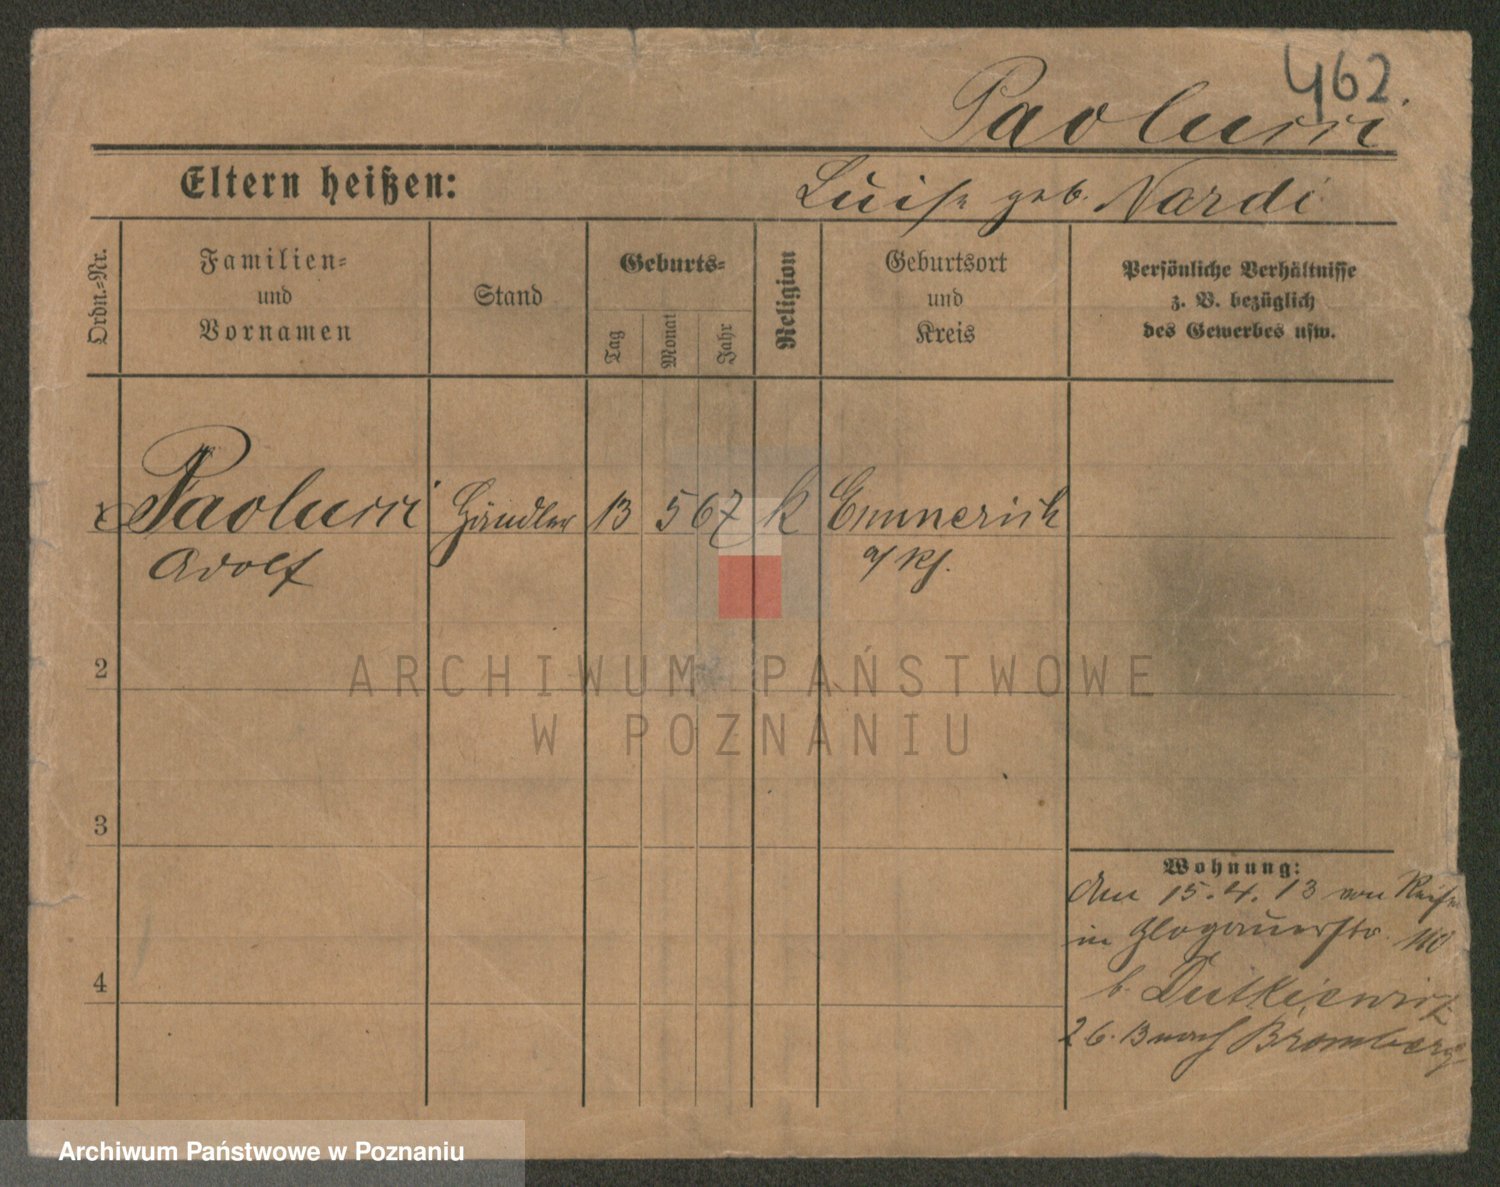 462.
Paolucci
Eltern heißen:
Luise geb. Nardi
Ordn.-Nr.
Familien-
und
Vornamen
Stand
Geburts-
Tag
Monat
Jahr
Religion
Geburtsort
und
Kreis
Persönliche Verhältnisse
z. B. bezüglich
des Gewerbes usw.
1 Paolucci Händler 13 5 67 k Emmerich
Adolf a/Rh.
2
3
4
Wohnung:
Am 15.4.13 von Reisen
in Glogauerstr. 110
b. Dutkiewicz
2 6. 13 nach Bromberg
ARCHIWUM PAŃSTWOWE
W POZNANIU
Archiwum Państwowe w Poznaniu